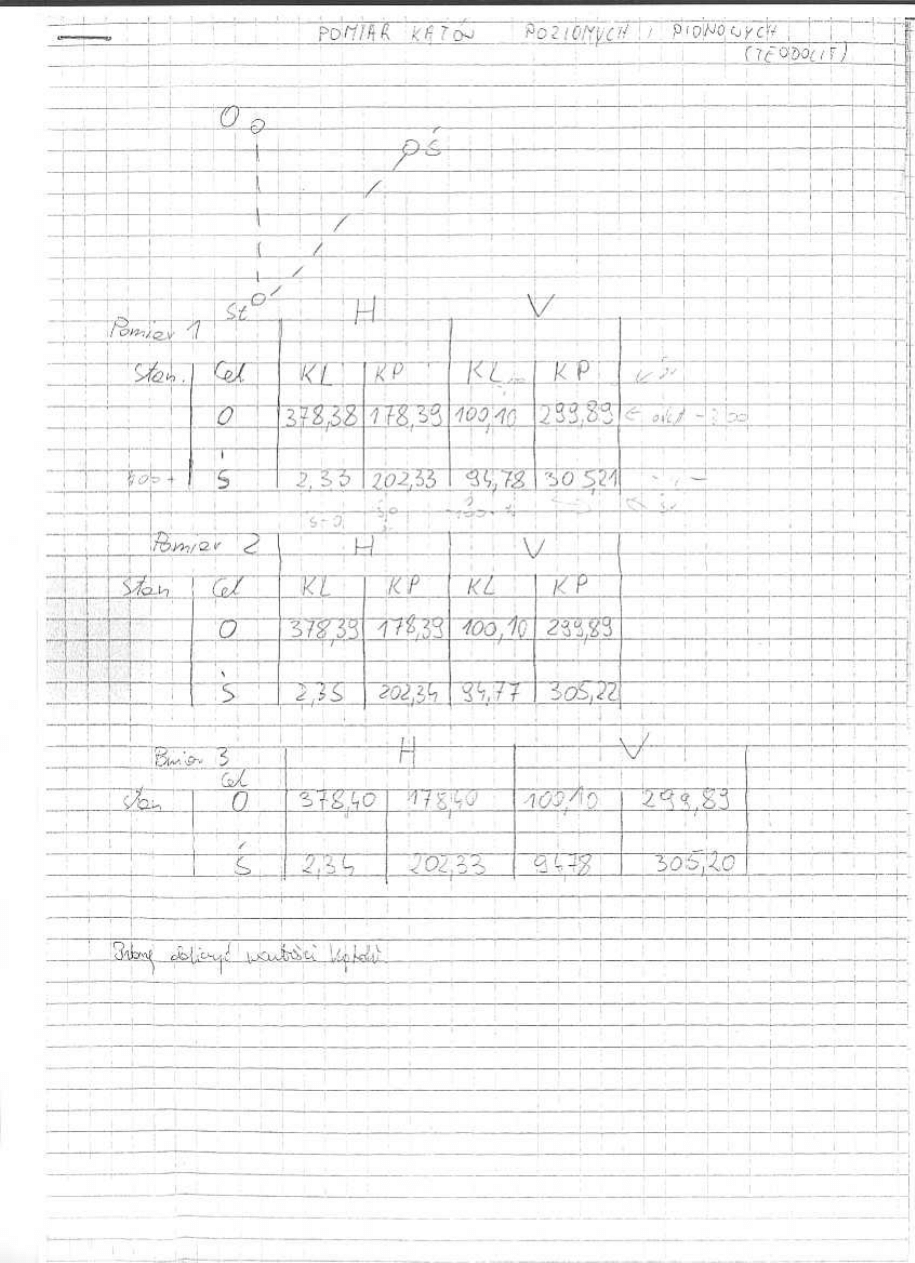 POMIAR KĄTÓW POZIOMYCH I PIONOWYCH
(TEODOLIT)
O
Ś
St
Pomiar 1 H V
Stan. Cel KL KP KL KP
O 378,38 178,39 100,10 299,89
Ś 2,33 202,33 94,78 305,21
Pomiar 2 H V
Stan Cel KL KP KL KP
O 378,39 178,39 100,10 299,89
Ś 2,35 202,34 94,77 305,22
Pomiar 3 H V
Cel
Stan O 378,40 178,40 100,10 299,89
Ś 2,34 202,33 94,78 305,20
Proszę obliczyć wartości kątów